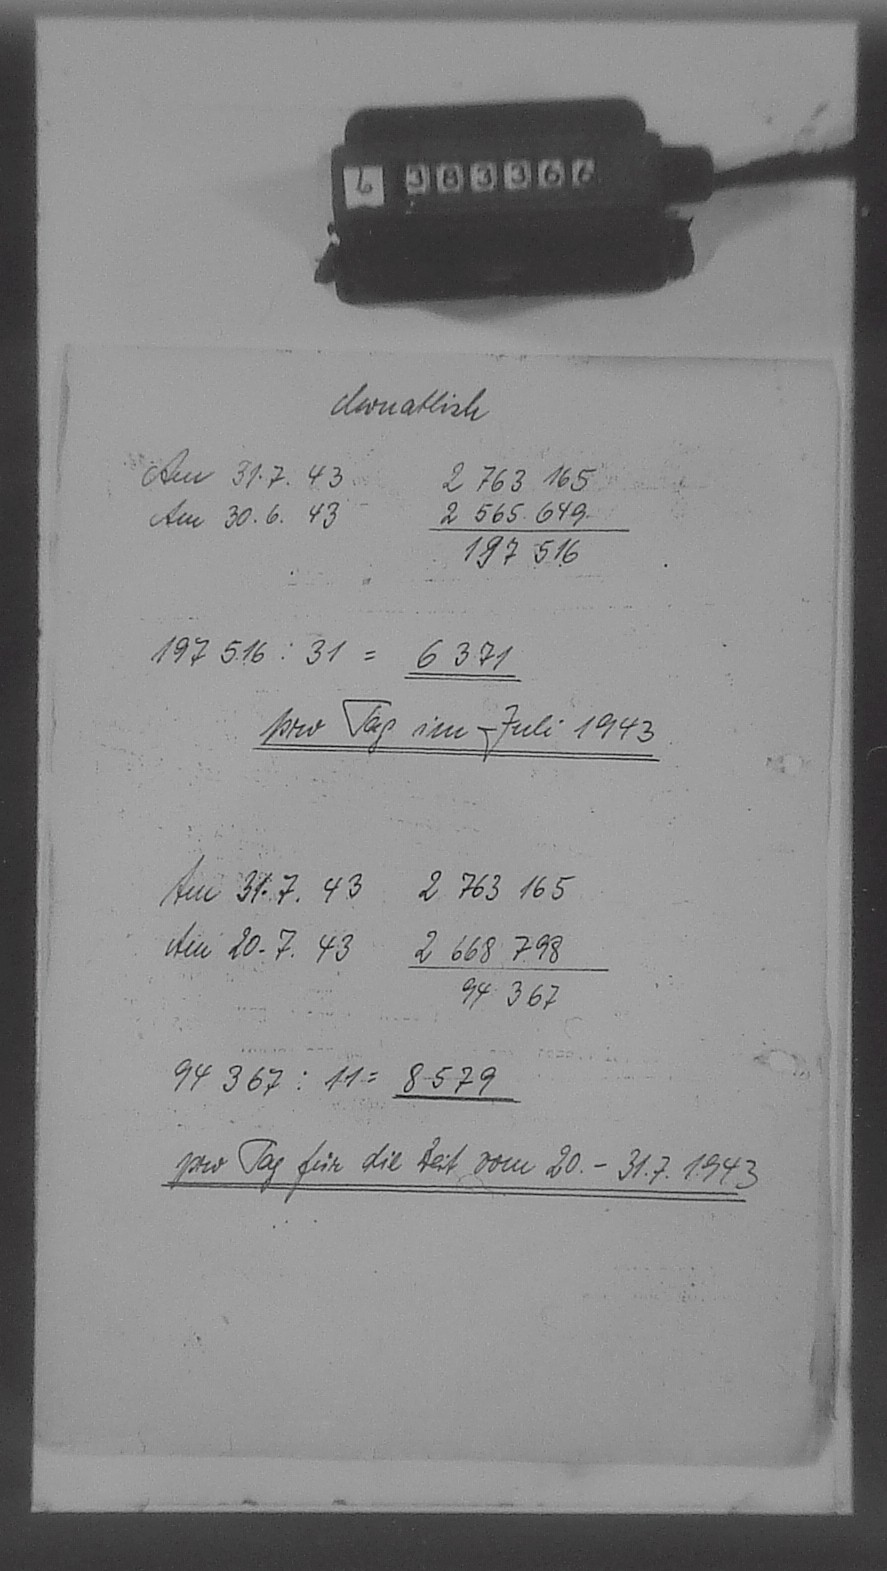 6 383366
Monatlich
Am 31.7.43 2 763 165
Am 30.6.43 2 565 649
197 516
197 516 : 31 = 6 371
pro Tag im Juli 1943
Am 31.7.43 2 763 165
Am 20.7.43 2 668 798
94 367
94 367 : 11 = 8 579
pro Tag für die Zeit vom 20. – 31.7.1943